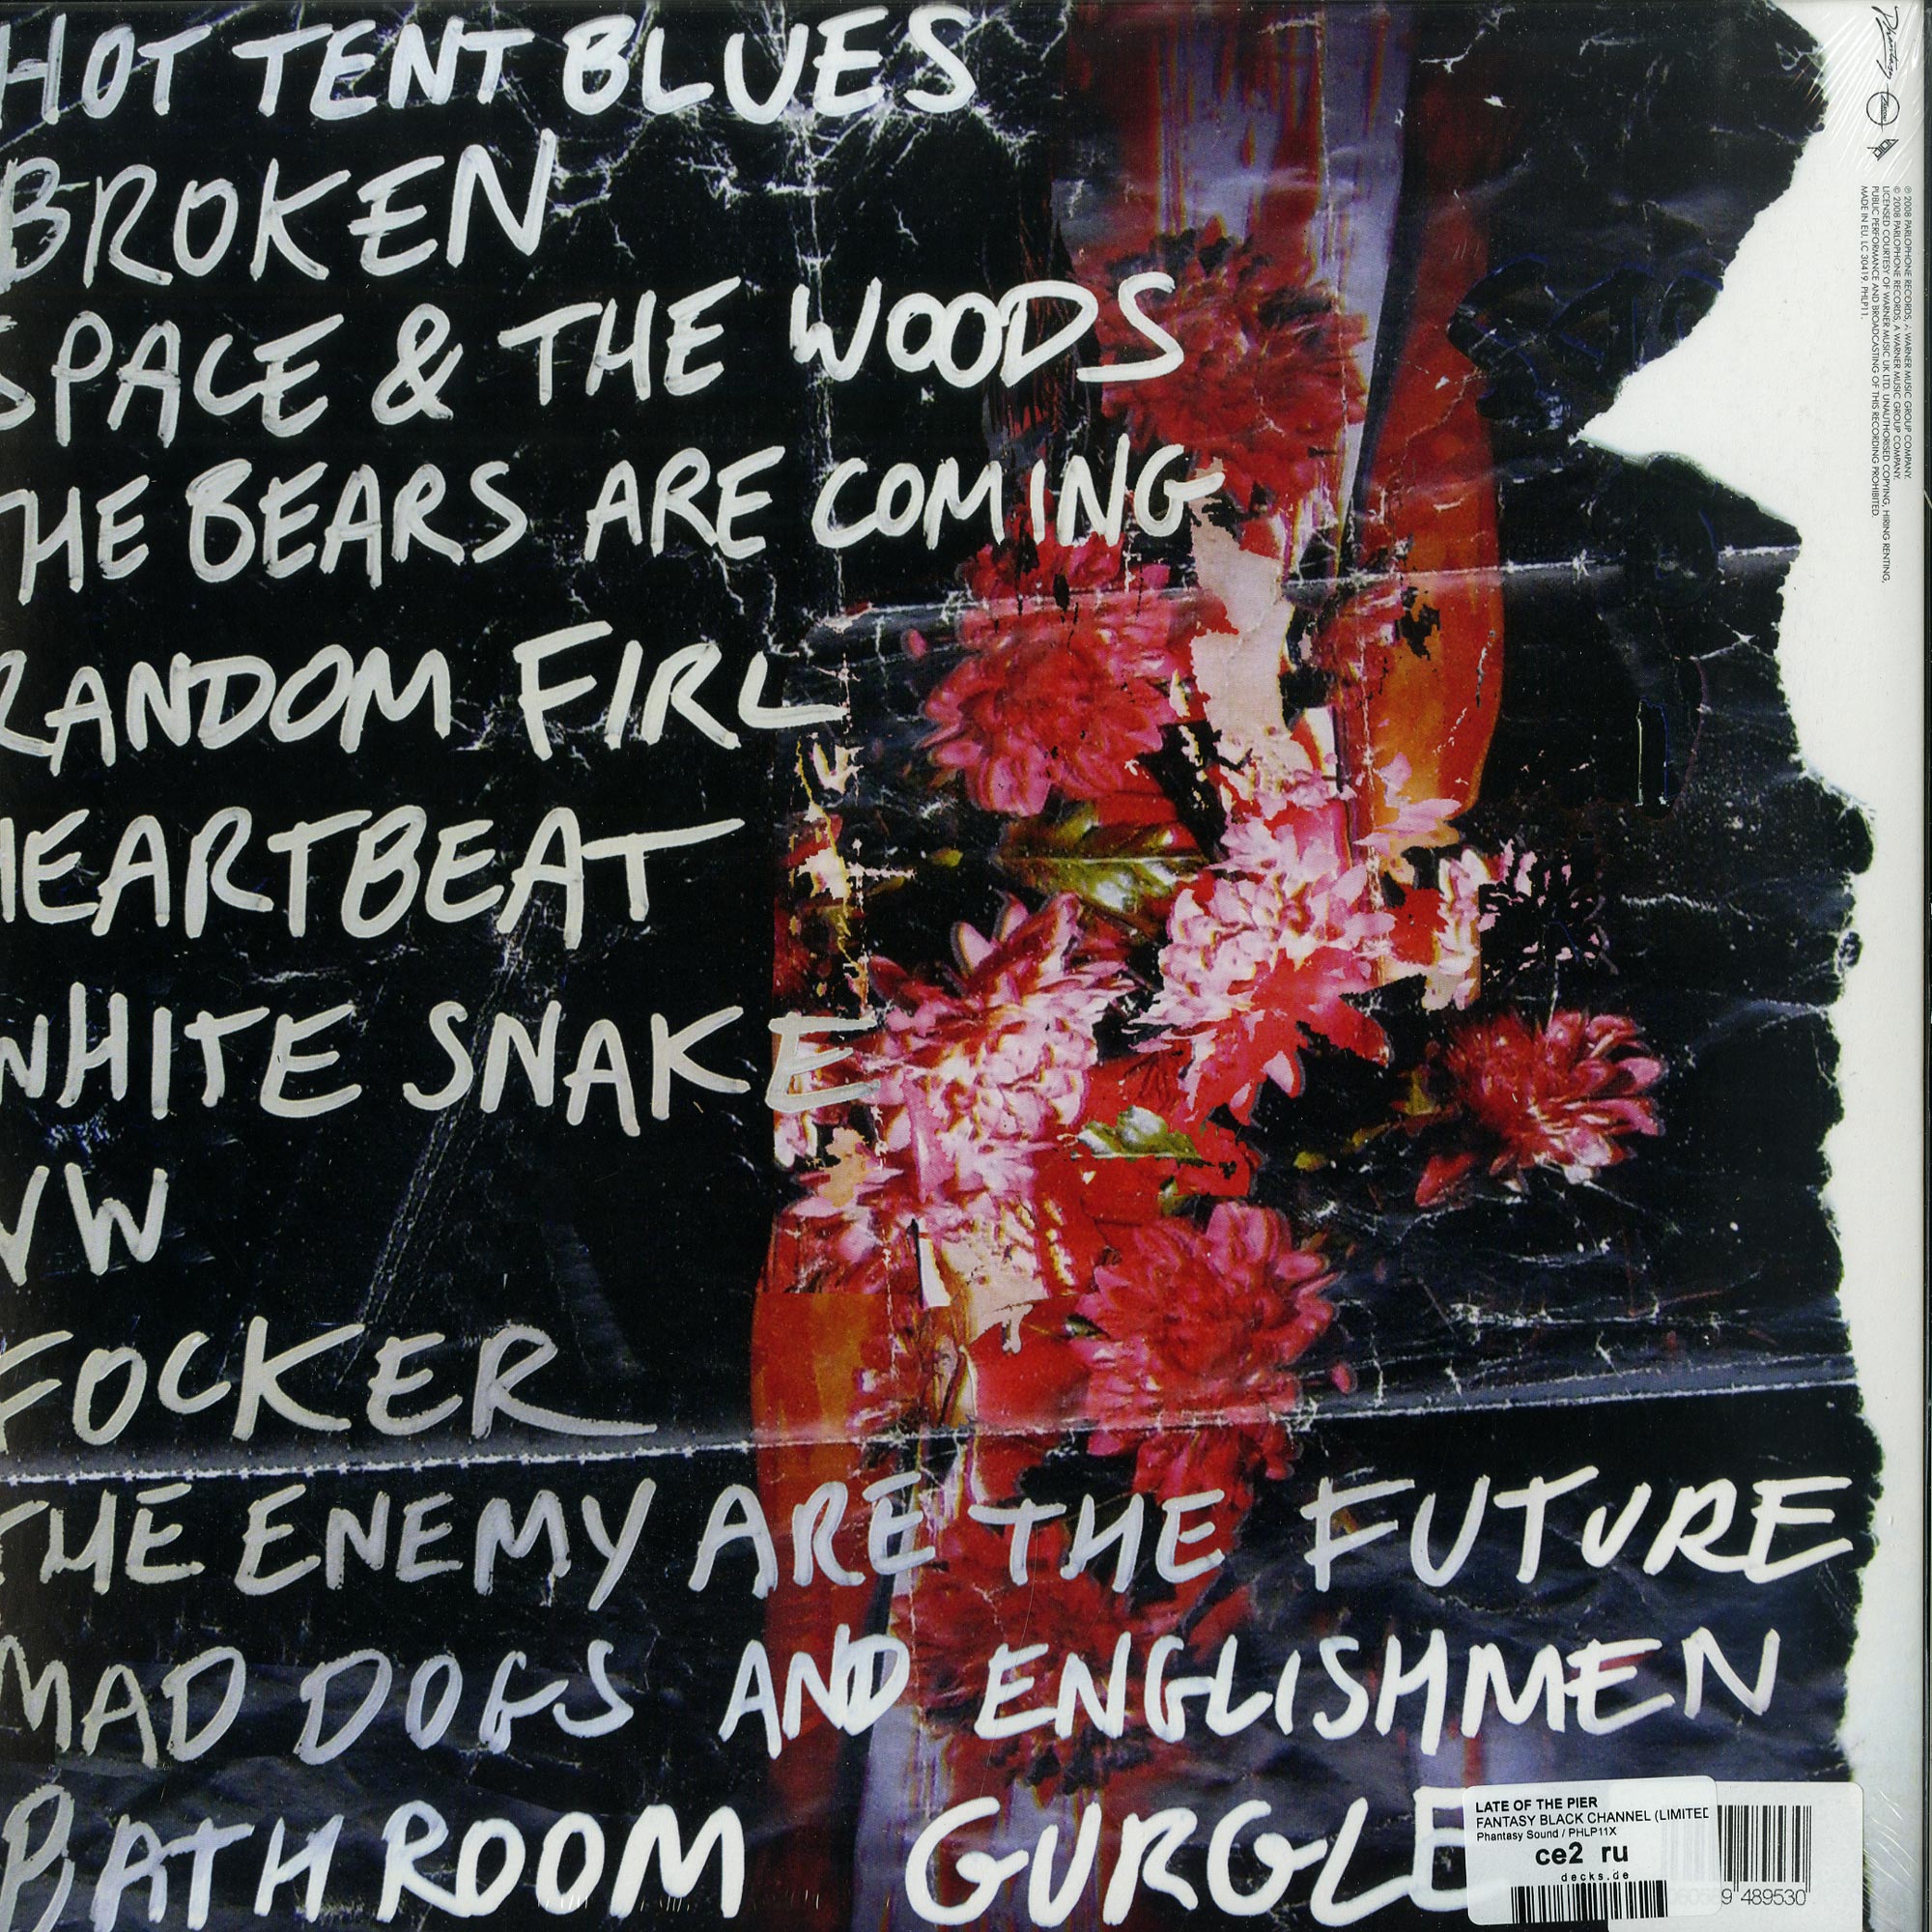 HOT TENT BLUES
BROKEN
SPACE & THE WOODS
THE BEARS ARE COMING
RANDOM FIRL
HEARTBEAT
WHITE SNAKE
VW
FOCKER
THE ENEMY ARE THE FUTURE
MAD DOGS AND ENGLISHMEN
BATHROOM GURGLE
Phantasy
℗ 2008 PARLOPHONE RECORDS, A WARNER MUSIC GROUP COMPANY.
© 2008 PARLOPHONE RECORDS, A WARNER MUSIC GROUP COMPANY.
LICENSED COURTESY OF WARNER MUSIC UK LTD. UNAUTHORISED COPYING, HIRING RENTING,
PUBLIC PERFORMANCE AND BROADCASTING OF THIS RECORDING PROHIBITED.
MADE IN EU. LC 30419. PHLP11.
LATE OF THE PIER
FANTASY BLACK CHANNEL (LIMITED
Phantasy Sound / PHLP11X
ce2 ru
decks.de
9 489530